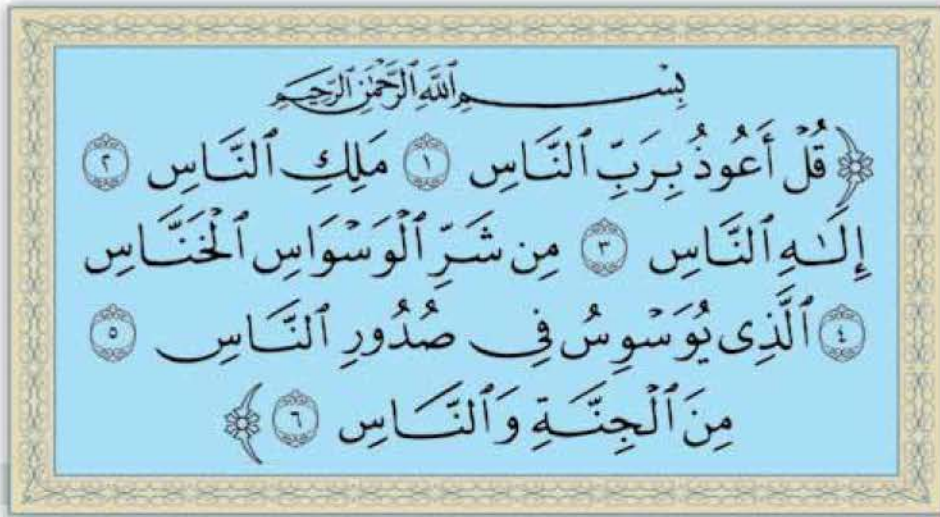 بِسْمِ ٱللَّهِ ٱلرَّحْمَٰنِ ٱلرَّحِيمِ
﴿ قُلْ أَعُوذُ بِرَبِّ ٱلنَّاسِ ١ مَلِكِ ٱلنَّاسِ ٢
إِلَٰهِ ٱلنَّاسِ ٣ مِن شَرِّ ٱلْوَسْوَاسِ ٱلْخَنَّاسِ
٤ ٱلَّذِى يُوَسْوِسُ فِى صُدُورِ ٱلنَّاسِ ٥
مِنَ ٱلْجِنَّةِ وَٱلنَّاسِ ٦ ﴾